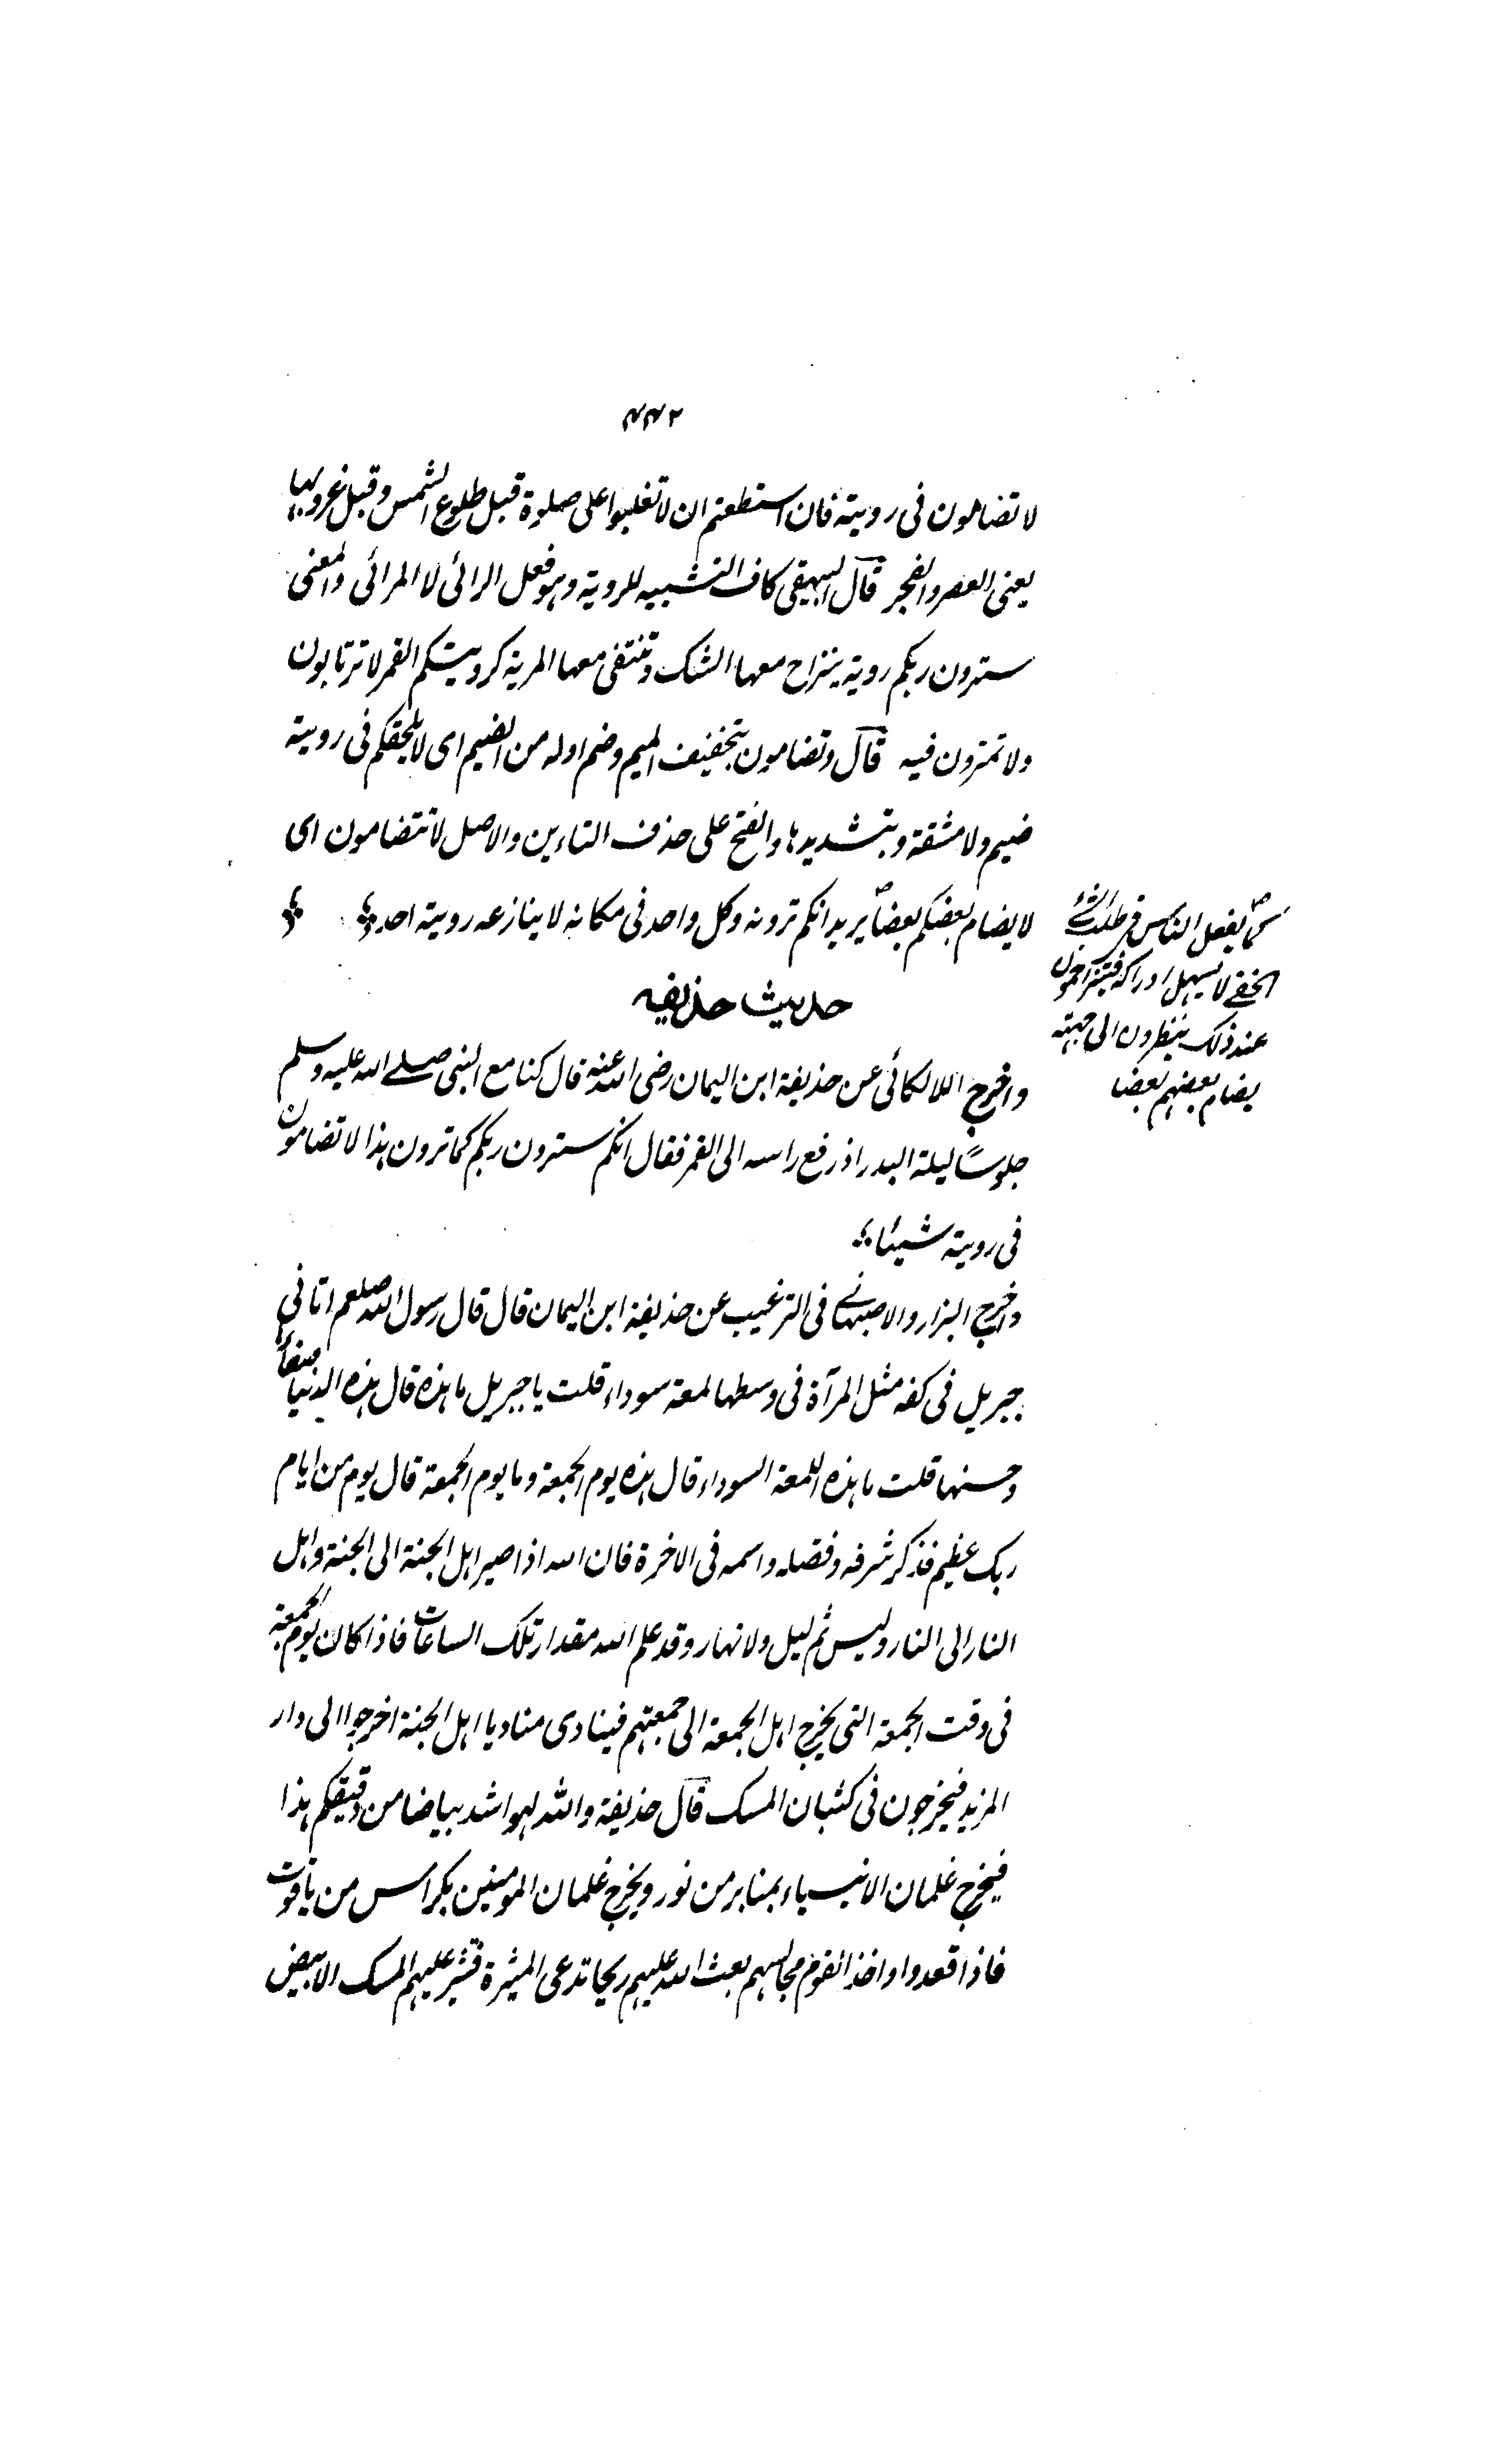 ۴۴۲
لا تضامون فى رويته فان استطعتم ان لا تغلبوا على صلوة قبل طلوع الشمس وقبل غروبها
يعنى العصر والفجر قال البيهقى كاف التشبيه للروية وهو فعل الرائى لا المرائى والمعنى
سترون ربكم روية ينزاح معها الشك وتنتفى معها المرية كرويتكم القمر لا ترتابون
ولا تمترون فيه قال وتضامون بتخفيف الميم وضم اوله من الضيم اى لا يلحقكم فى رويته
ضيم ولا مشقة وبتشديدها والفتح على حذف التاءين والاصل لا تتضامون اى
لا يضام بعضكم بعضا يريد انكم ترونه وكل واحد فى مكانه لا ينازعه رويته احد
كما يفعل الناس فى طلب الشئ
الخفى لا يسهل ادراكه فيتزاحمون
عند ذلك ينظرون الى جهته
يضام بعضهم بعضا
حديث حذيفه
واخرج اللالكائى عن حذيفة ابن اليمان رضى الله عنه قال كنا مع النبى صلے الله عليه وسلم
جلوسًا ليلة البدر اذ رفع راسه الى القمر فقال انكم سترون ربكم كما ترون هذا لا تضامون
فى رويته شيئا
واخرج البزار والاصبهانے فى الترغيب عن حذيفة ابن اليمان قال قال رسول الله صلعم اتانى
جبريل فى كفه مثل المرآة فى وسطها لمعة سوداء قلت يا جبريل ما هذه قال هذه الدنيا صفاؤها
وحسنها قلت ما هذه اللمعة السوداء قال هذه يوم الجمعة وما يوم الجمعة قال يوم من ايام
ربك عظيم فذكر شرفه وفضله واسمه فى الاخرة فان الله اذا صير اهل الجنة الى الجنة واهل
النار الى النار وليس ثم ليل ولا نهار وقد علم الله مقدار تلك الساعات فاذا كان يوم الجمعة
فى وقت الجمعة التى يخرج اهل الجمعة الى جمعتهم فينادى مناد يا اهل الجنة اخرجوا الى دار
المزيد فيخرجون فى كثبان المسك قال حذيفة والله لهو اشد بياضا من دقيقكم هذا
فيخرج غلمان الانبياء بمنابر من نور ويخرج غلمان المومنين بكراسى من ياقوت
فاذا قعدوا واخذ القوم مجالسهم بعث الله عليهم ريحا تدعى المثيرة فتثير عليهم المسك الابيض